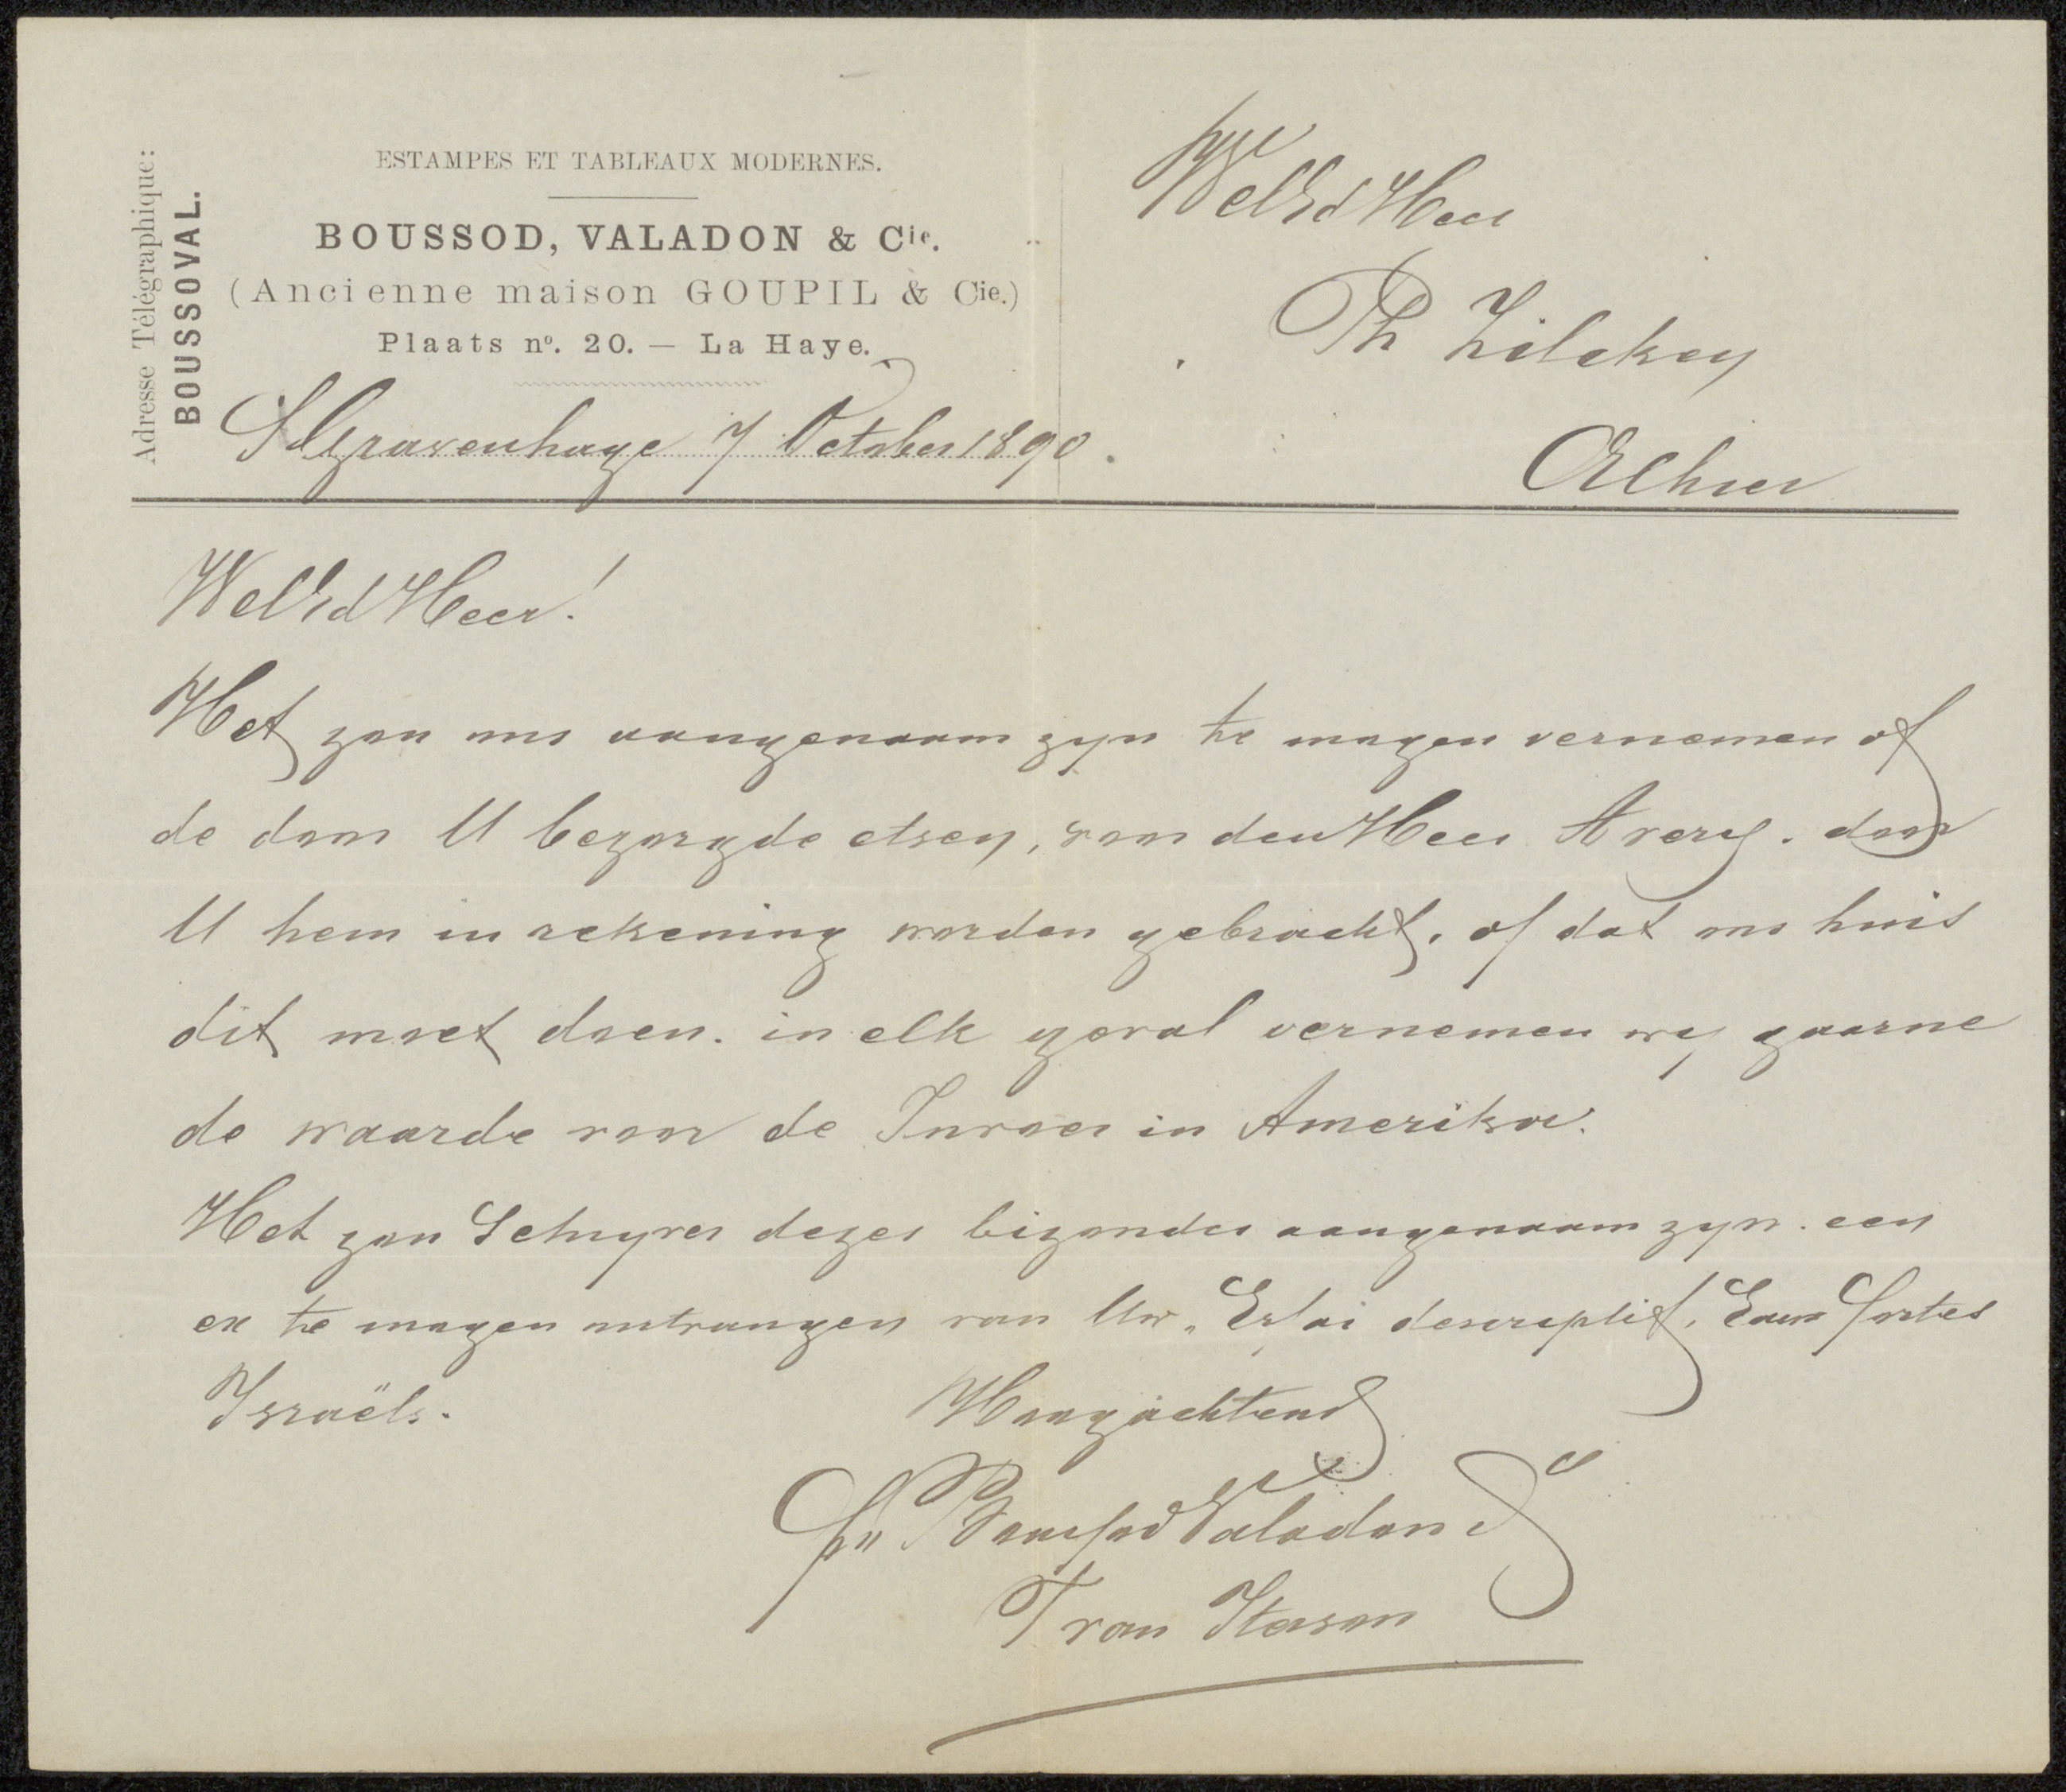 Adresse Télégraphique:
BOUSSOVAL.
ESTAMPES ET TABLEAUX MODERNES.
BOUSSOD, VALADON & Cie.
(Ancienne maison GOUPIL & Cie.)
Plaats no. 20. — La Haye.
S'Gravenhage 7 October 1890.
WelEd Heer
Ph Zilcken
Alhier
WelEd Heer!
Het zou ons aangenaam zyn te mogen vernemen of
de door U bezorgde etsen, van den Heer Avery. door
U hem in rekening worden gebracht, of dat ons huis
dit moet doen. in elk geval vernemen wy gaarne
de waarde voor de Invoer in Amerika.
Het zou Schryver dezes bizonder aangenaam zyn. een
ex te mogen ontvangen van Uw „Essai descriptif, Eaux fortes
Israëls.
Hoogachtend
Boussod Valadon
T van Iterson